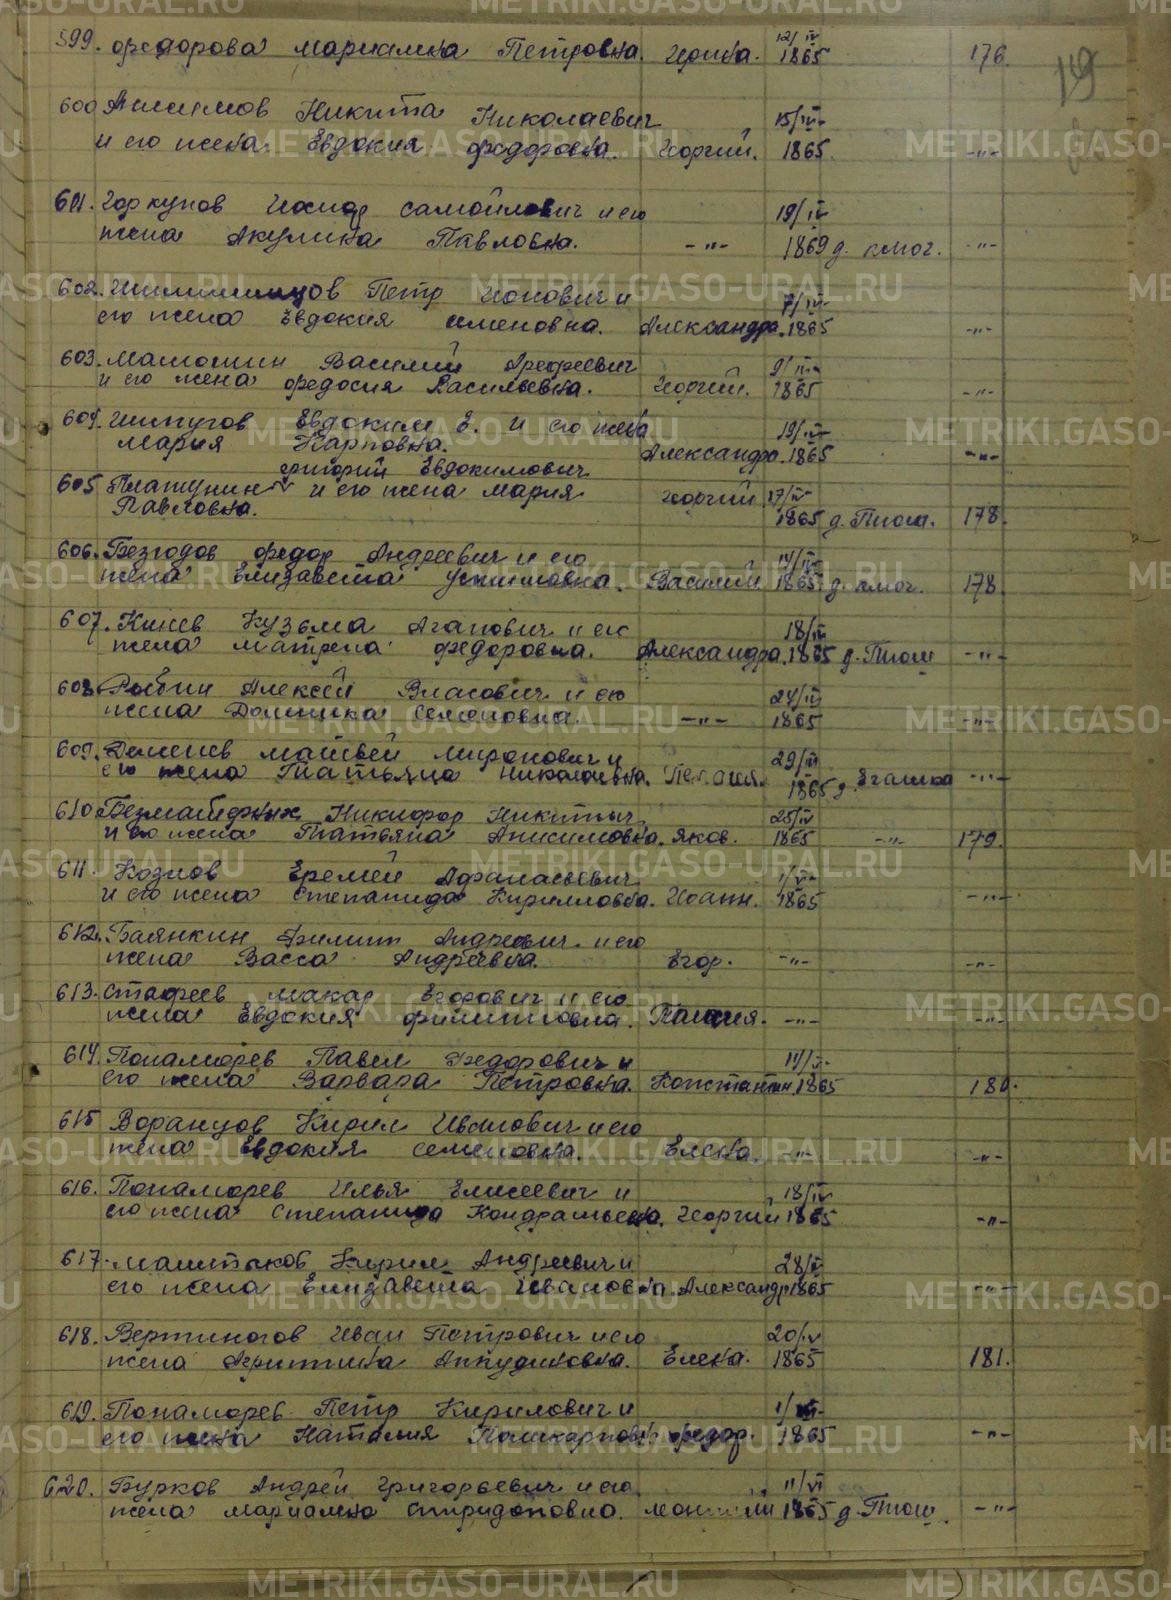 599. Федорова Мариамна Петровна. 12/IV 1865 176. 19
600 Анисимов Никита Николаевич 15/IV
и его жена Евдокия Федоровна. Георгий. 1865 -"-
601. Горкунов Иосиф Самойлович и его 19/IV
жена Акулина Павловна. -"- 1869 д. ключ. -"-
602. Петр Ионович и 7/IV
его жена Евдокия Семеновна. Александра. 1865 -"-
603. Мамонтин Василий Арефеевич 9/IV
и его жена Федосия Васильевна. Георгий. 1865 -"-
604. Шипугов Евдоким Е. и его жена 19/IV
Мария Карповна. Александра. 1865 -"-
Григорий Евдокимович
605 Платунин и его жена Мария Георгий 17/IV
Павловна. 1865 д. Птош. 178.
606. Безгодов Федор Андреевич и его 14/IV
жена Елизавета Устимовна. Василий 1865 д. ключ. 178.
607. Князев Кузьма Агапович и его 18/IV
жена Матрена Федоровна. Александра. 1865 д. Птош -"-
608. Рябин Алексей Власович и его 24/IV
жена Домника Семеновна. -"- 1865 -"-
609. Деменев Матвей Миронович и 29/IV
его жена Татьяна Николаевна. Пелагия. 1865 д. -"-
610 Безматерных Никифор Никитыч 25/IV
и его жена Татьяна Анисимовна. Яков. 1865 -"- 179.
611. Козлов Еремей Афанасьевич 1/V
и его жена Степанида Кирилловна. Иоанн. 1865 -"-
612. Баянкин Филипп Андреевич и его
жена Васса Андреевна. Егор. -"- -"-
613. Стафеев Макар Егорович и его
жена Евдокия Филипповна. Пелагия. -"- -"-
614. Понаморев Павел Федорович и 11/V
его жена Варвара Петровна. Константин. 1865 180.
615 Воранцов Кирил Иванович и его
жена Евдокия Семеновна. Елена. -"- -"-
616. Понаморев Илья Елисеевич и 18/IV
его жена Степанида Кондратьевна. Георгий 1865 -"-
617. Маштаков Кирил Андреевич и 28/IV
его жена Елизавета Ивановна. Александр 1865 -"-
618. Вертиногов Иван Петрович и его 20/IV
жена Агрипина Анкудиновна. Елена. 1865 181.
619. Понаморев Петр Кирилович и 1/VI
его жена Наталия Поликарповна Федор. 1865 -"-
620. Бурков Андрей Григорьевич и его 11/VI
жена Мариамна Спиридоновна. 1865 д. Птош. -"-
METRIKI.GASO-URAL.RU